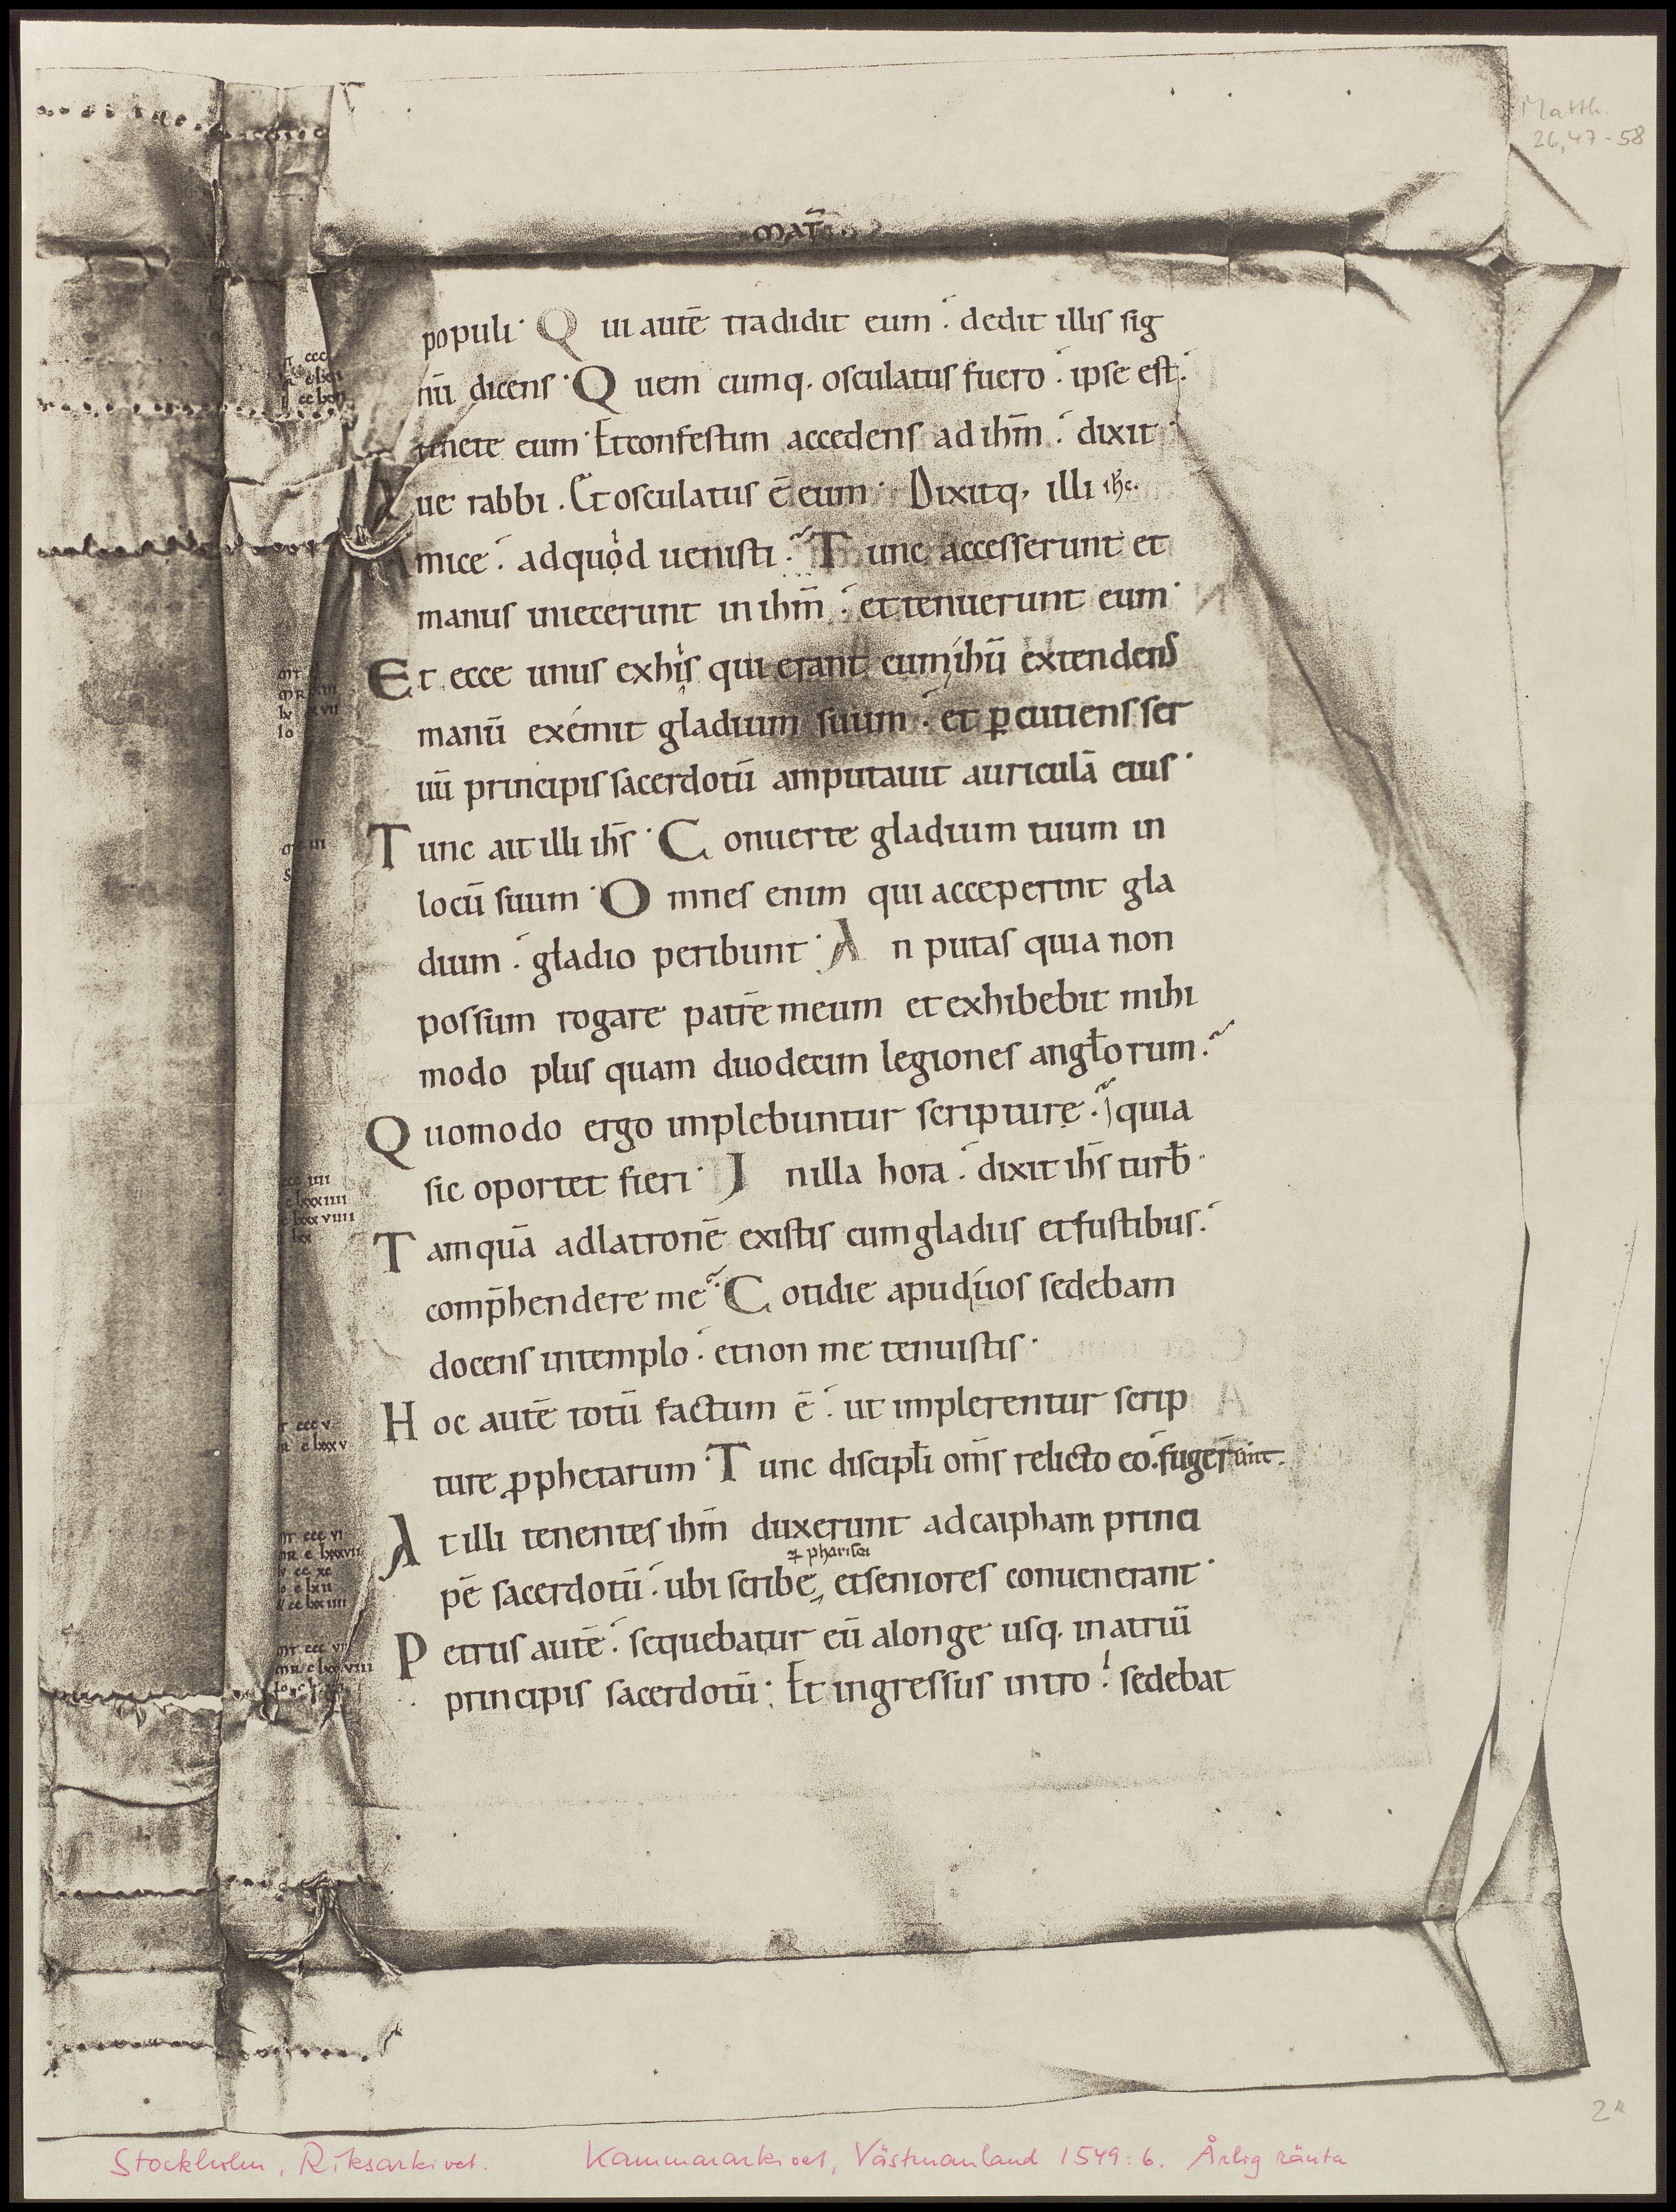 Matth.
26,47-58
MAT̄
populi· Qui autē tradidit eum·́ dedit illis sig
nū dicens· Quem cumq· osculatus fuero·́ ipse est·́
tenete eum· Et confestim accedens ad ihm̄·́ dixit·
Aue rabbi. Et osculatus ē eum· Dixitq, illi ihc·
Amice·́ ad quod uenisti·̃ Tunc accesserunt et
manus iniecerunt in ihm̄·́ et tenuerunt eum·
Et ecce unus ex his qui erant cum ihū extendens
manū exémit gladium suum·́ et ꝑcutiens ser
uū principis sacerdotū amputauit auriculā eius·
Tunc ait illi ihs̄· Conuerte gladium tuum in
locū suum· Omnes enim qui acceperint gla
dium·́ gladio peribunt· An putas quia non
possum rogare patrē meum et exhibebit mihi
modo plus quam duodecim legiones angłorum·̃
Quomodo ergo implebuntur scripturę·̃ quia
sic oportet fieri· In illa hora·́ dixit ihs̄ turb̄·
Tamquā ad latronē existis cum gladiis et fustibus·́
comp̄hendere me·̃ Cotidie apud uos sedebam
docens in templo·́ et non me tenuistis·
Hoc autē totū factum ē·́ ut implerentur scrip
ture ꝓphetarum· Tunc discipłi om̄s relicto eo·́ fugerunt·
At illi tenentes ihm̄ duxerunt ad caipham princi
⁊ pharisei
pē sacerdotū·́ ubi scribe, et seniores conuenerant·
Petrus autē·́ sequebatur eū a longe usq· in atriū
principis sacerdotū· Et ingressus intro·́ sedebat
2r
Stockholm, Riksarkivet. Kammararkivet, Västmanland 1549:6. Årlig ränta